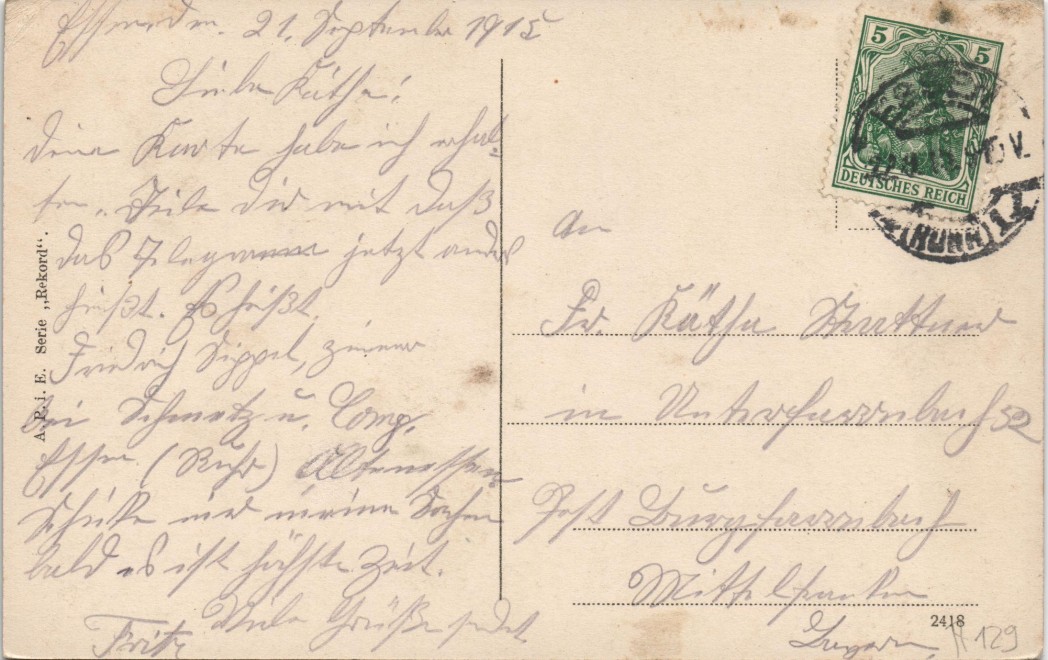 Essen den 21. September 1915
Liebe Käthe!
Deine Karte habe ich erhal-
ten. Teile dir mit daß
das Telegramm jetzt anders
heißt. Es heißt.
Friedrich Sippel,
bei Schmatz u. Comp.
Essen (Ruhr) Altenessen
Schicke mir meine Sachen
bald es ist höchste Zeit.
Viele Grüße sendet
Fritz
A. R. i. E. Serie „Rekord“.
5 5
DEUTSCHES REICH
(RUHR)
An
Fr. Käthe
in Unterfarrnbach 52
Post Burgfarrnbach
Mittelfranken
Bayern
2418
129